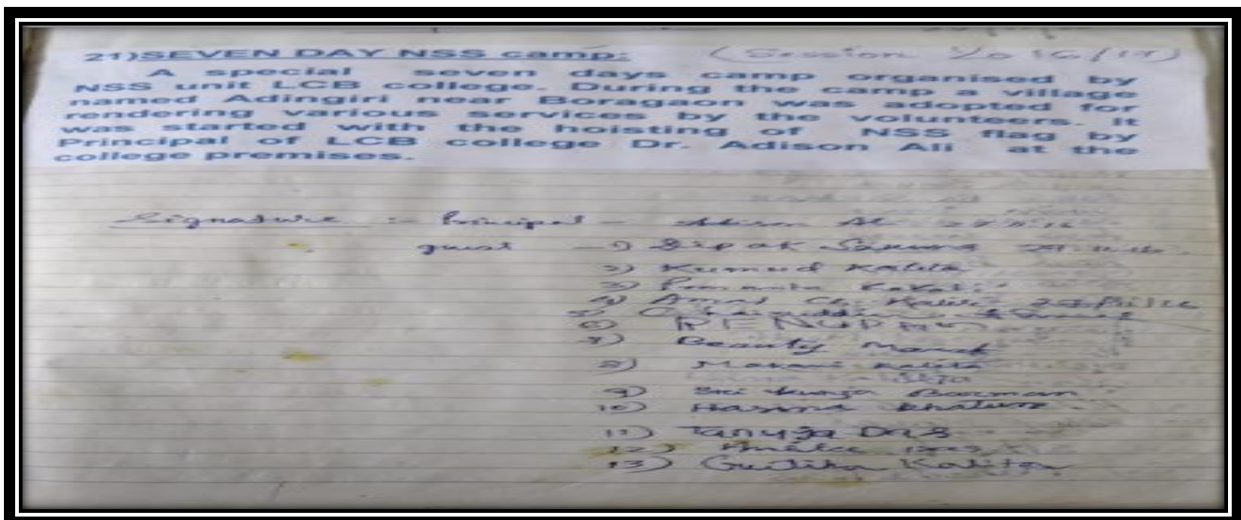 21)SEVEN DAY NSS camp: (Session 2016/17)
A special seven days camp organised by
NSS unit LCB college. During the camp a village
named Adingiri near Boragaon was adopted for
rendering various services by the volunteers. It
was started with the hoisting of NSS flag by
Principal of LCB college Dr. Adison Ali at the
college premises.
Signature :- Principal - Adison Ali
guest - 1) Dipak
2) Kumud Kalita
3) Kakati
4) Amal Ch. Kalita
5)
6)
7) Beauty
8) Kalita
9) Sri Barman
10) Hasina Khatun
11) Tanuja Das
12)
13) Gitika Kalita